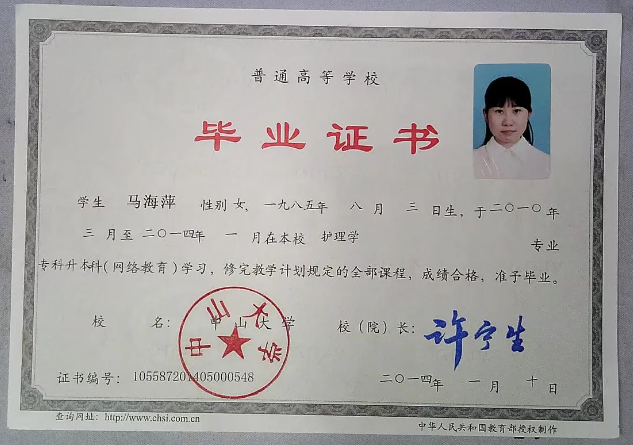 普通高等学校
毕业证书
学生 马海萍 性别 女，一九八五年 八 月 三 日生，于二〇一〇年
三 月至 二〇一四年 一 月在本校 护理学 专业
专科升本科（网络教育）学习，修完教学计划规定的全部课程，成绩合格，准予毕业。
校 名：中山大学 校（院）长：许宁生
中山大学
证书编号：105587201405000548 二〇一四年 一 月 十 日
查询网址：http://www.chsi.com.cn 中华人民共和国教育部授权制作